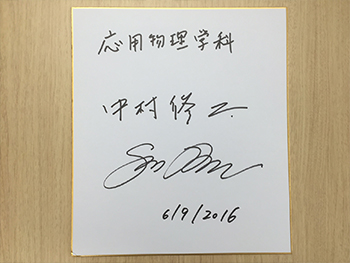 応用物理学科
中村修二
6/9/2016